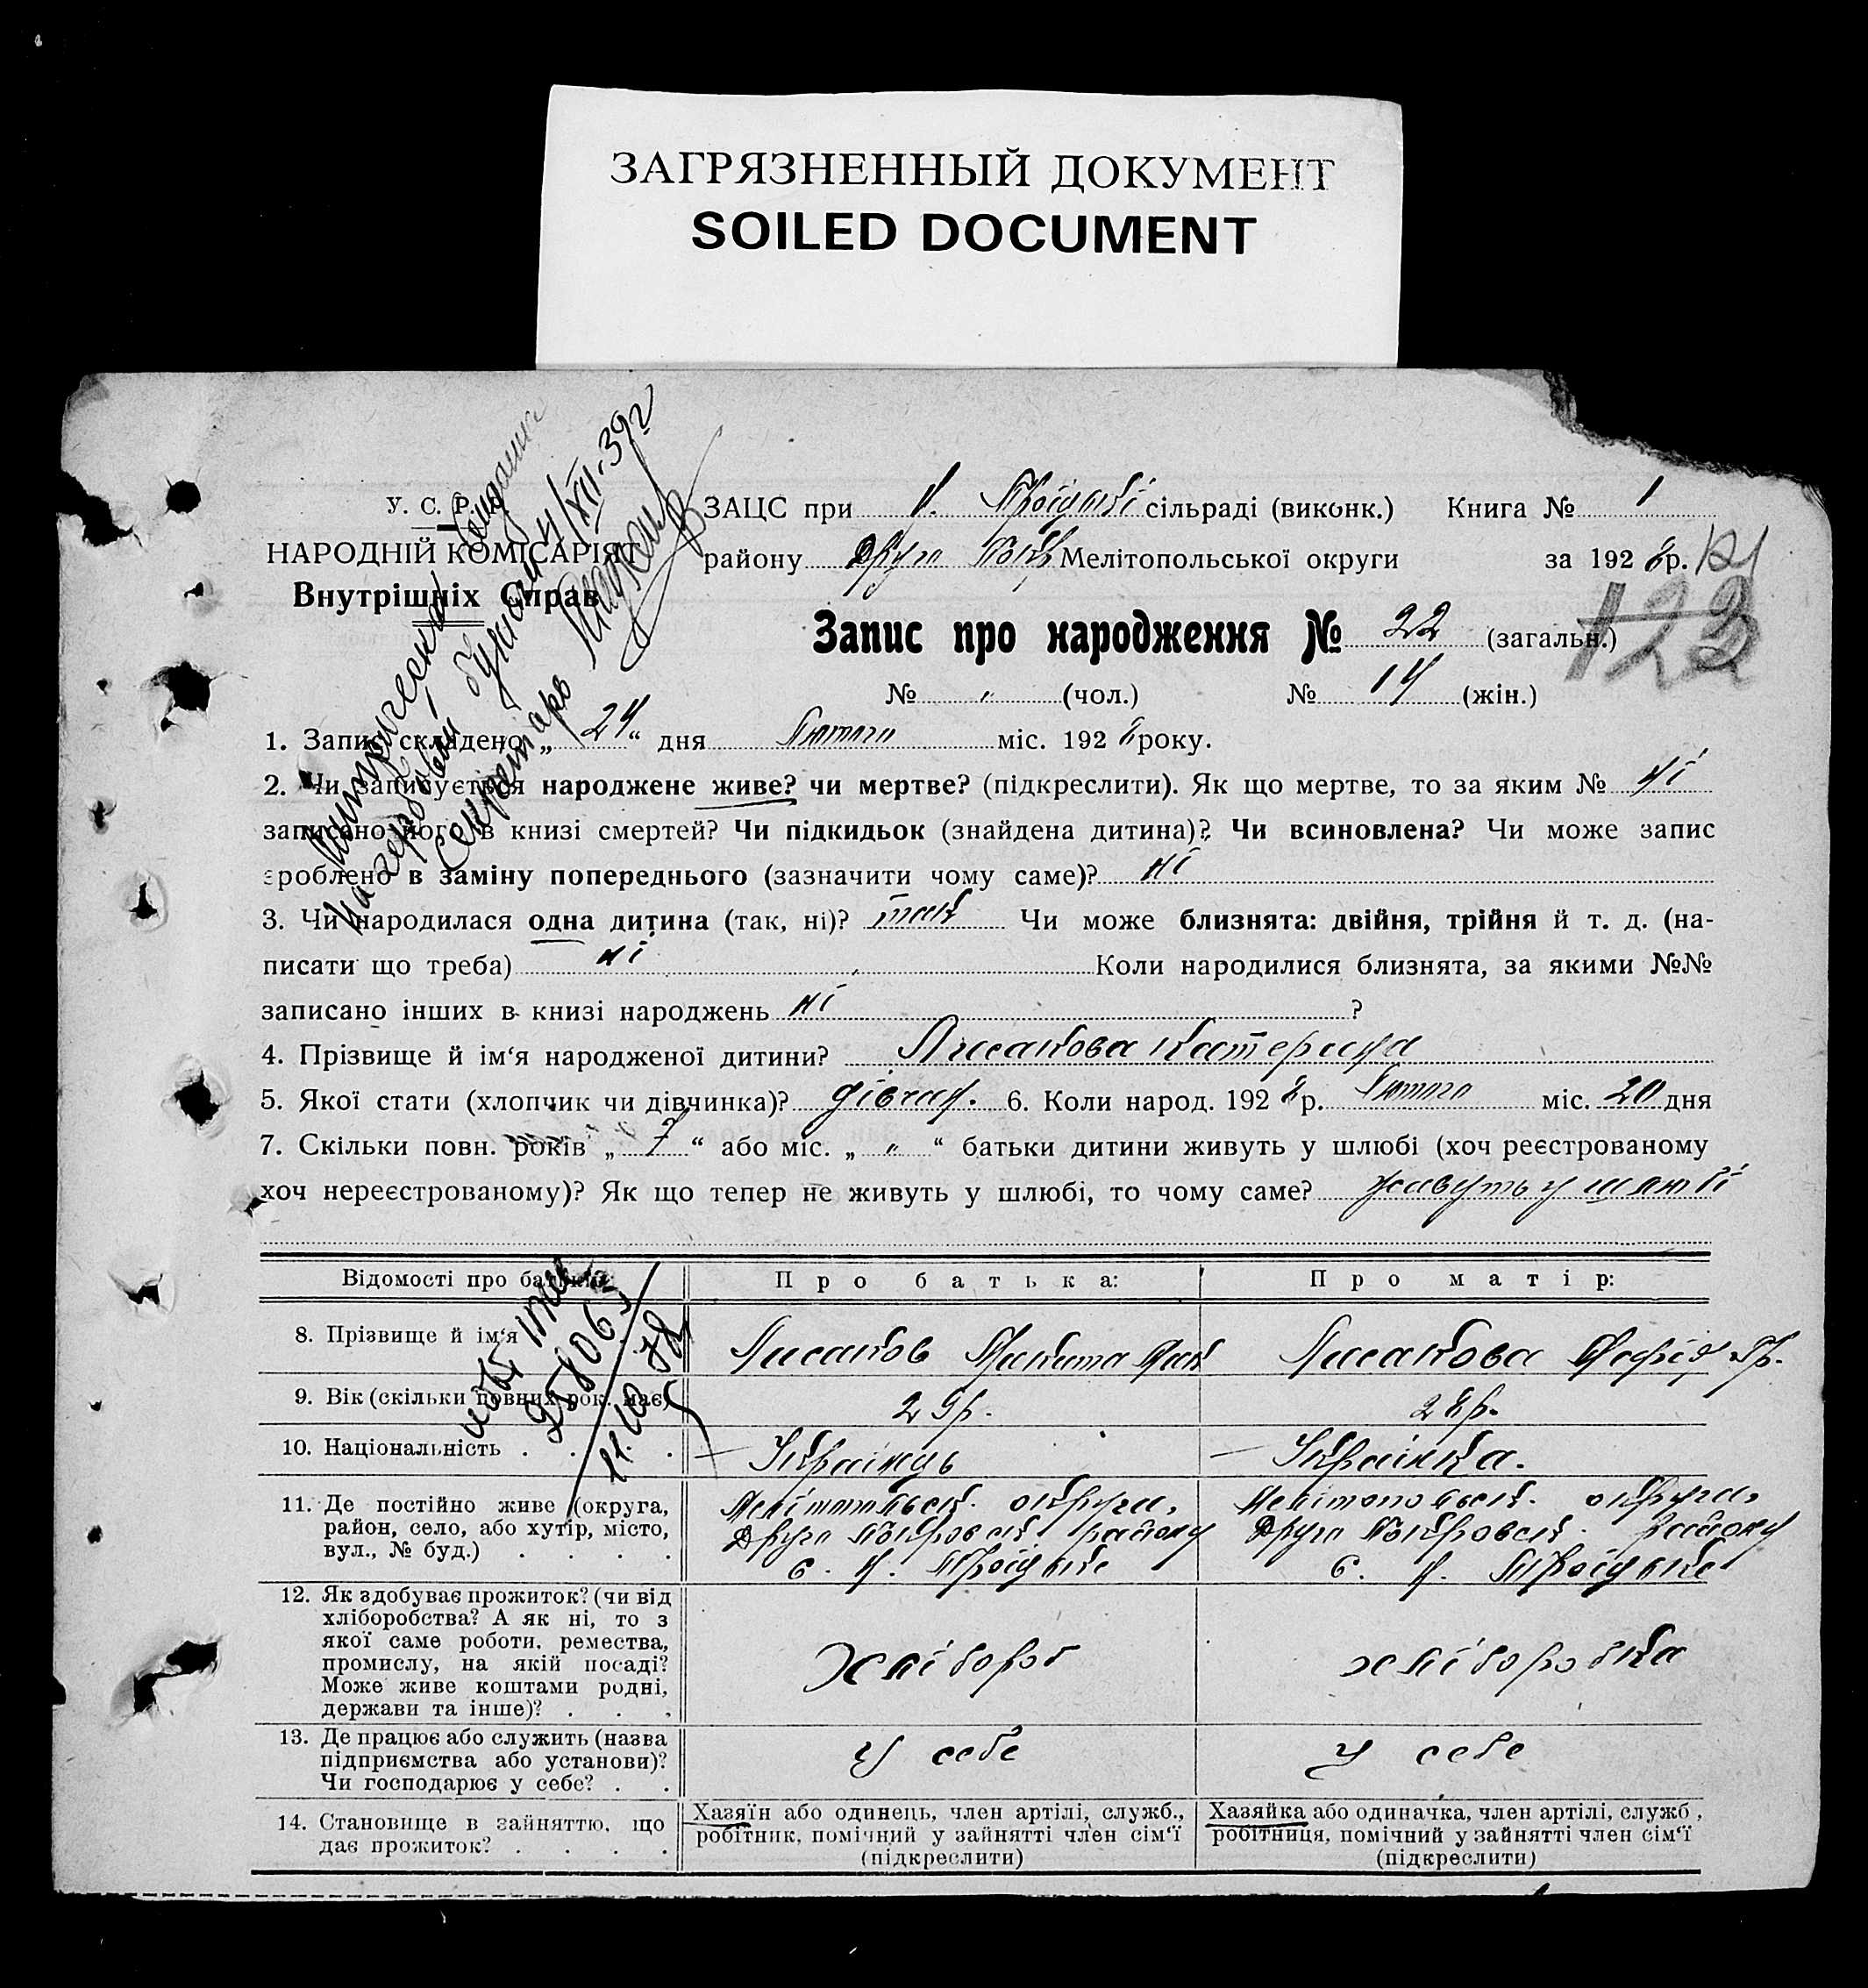 ЗАГРЯЗНЕННЫЙ ДОКУМЕНТ
SOILED DOCUMENT
У. С. Р. Р.
НАРОДНІЙ КОМІСАРІЯТ
Внутрішніх Справ
ЗАЦС при Н. Троїцькій сільраді (виконк.) Книга № 1
району Друго Покр Мелітопольської округи за 1928р.
123
Запис про народження № 22 (загальн.)
№ „ (чол.) № 14 (жін.)
1. Запис складено „24“ дня Лютого міс. 1928 року.
2. Чи записується народжене живе? чи мертве? (підкреслити). Як що мертве, то за яким № ні
записано його в книзі смертей? Чи підкидьок (знайдена дитина)? Чи всиновлена? Чи може запис
зроблено в заміну попереднього (зазначити чому саме)? ні
3. Чи народилася одна дитина (так, ні)? так Чи може близнята: двійня, трійня й т. д. (на-
писати що треба) ні Коли народилися близнята, за якими №№
записано інших в книзі народжень ні ?
4. Прізвище й ім‘я народженої дитини? Лисакова Катерина
5. Якої стати (хлопчик чи дівчинка)? дівчин. 6. Коли народ. 1928р. Лютого міс. 20 дня
7. Скільки повн. років „ 7 “ або міс. „ „ “ батьки дитини живуть у шлюбі (хоч реєстрованому
хоч нереєстрованому)? Як що тепер не живуть у шлюбі, то чому саме? живуть у шлюбі
Відомості про батьків: Про батька: Про матір:
8. Прізвище й ім‘я Лисаков Микита Лисакова Гр.
9. Вік (скільки повних рок. має) 29р. 28р.
10. Національність . . . . Українець Українка.
11. Де постійно живе (округа, Мелітопольськ. округи, Мелітопольськ. округи,
район, село, або хутір, місто, Друго Покровськ району Друго Покровськ. району
вул., № буд.) . . . . с. Н. Троїцьке с. Н. Троїцьке
12. Як здобуває прожиток? (чи від
хліборобства? А як ні, то з
якої саме роботи, ремества,
промислу, на якій посаді?
Може живе коштами родні,
держави та інше)? . . .
хлібороб хлиборобка
13. Де працює або служить (назва
підприємства або установи)?
Чи господарює у себе? . .
У себе У себе
14. Становище в зайняттю, що
дає прожиток? . . . .
Хазяїн або одинець, член артілі, служб.,
робітник, помічний у зайнятті член сім‘ї
(підкреслити)
Хазяйка або одиначка, член артілі, служб.,
робітниця, помічний у зайнятті член сім‘ї
(підкреслити)
Секретарь
4/XII-39г
258063
11.10.78